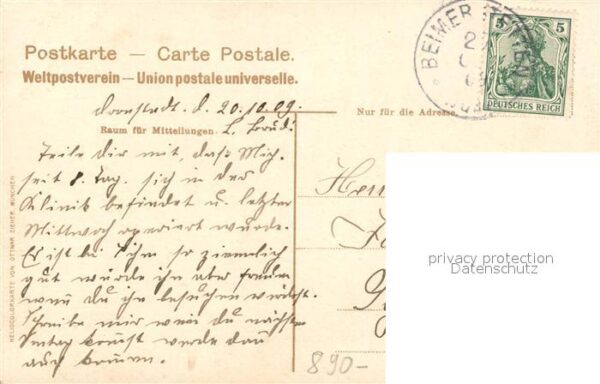 Postkarte — Carte Postale.
Weltpostverein — Union postale universelle.
5 5
DEUTSCHES REICH
BEIMERSTETTEN
Dornstadt, d. 20.10.09.
Nur für die Adresse.
Raum für Mitteilungen. L. Brud!
Teile dir mit, daß Mich.
seit 8. Tag. sich in der
Klinik befindet u. letzten
Mittwoch operiert wurde.
Es ist bei Ihm so ziemlich
gut würde ihn aber freuen
wenn du ihn besuchen würdest.
Schreibe mir wenn du nächsten
kommst werde dan
auch kommen.
HELIOCOLORKARTE VON OTTMAR ZIEHER, MÜNCHEN
privacy protection
Datenschutz
890-